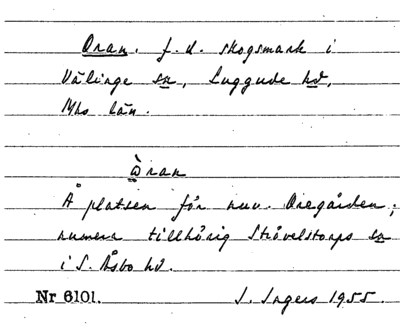 Oran. f.d. skogsmark i
Välinge sn, Luggude hd,
Mhs län.
òran
Å platsen för nuv. Oregården;
numera tillhörig Strövelstorps sn
i S. Åsbo hd.
Nr 6101. J. Ingers 1955.